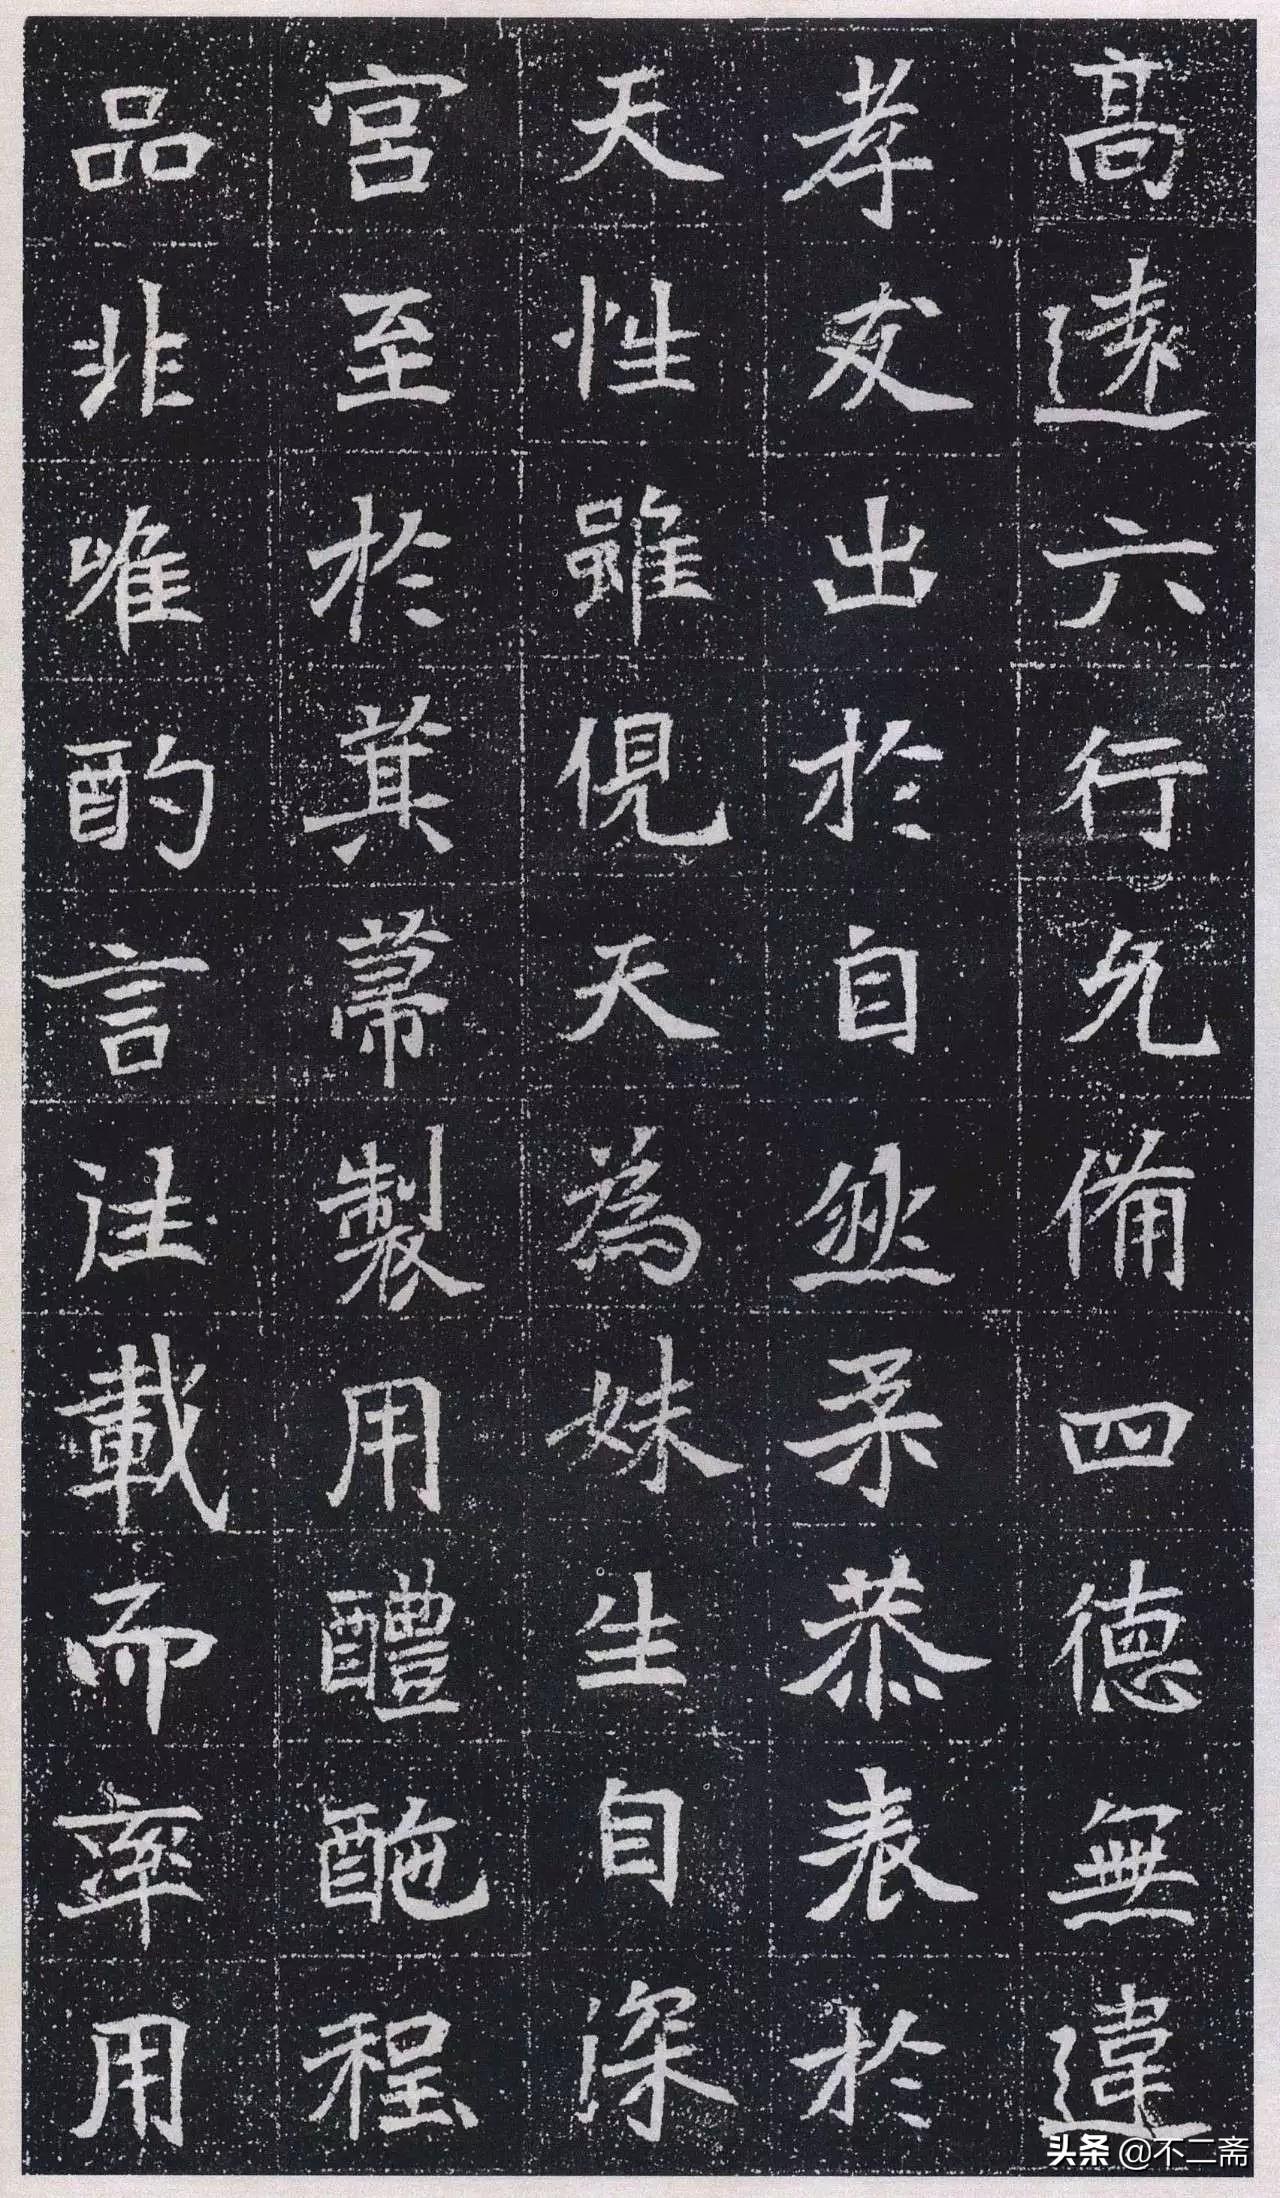 高遠六行允備四德無違
孝友出於自然柔恭表於
天性雖俔天為妹生自深
宮至於箕帚製用醴酏程
品非唯酌言注載而率用
头条 @不二斋